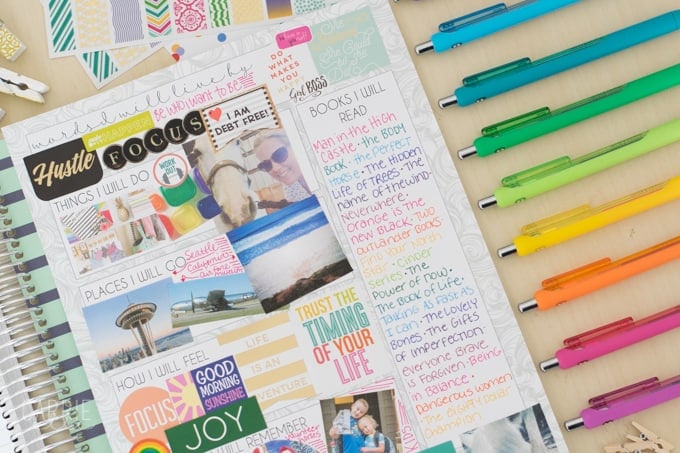 words I will live by
BE WHO I WANT TO BE
DO WHAT
MAKES
YOU
HAPPY
Girl BOSS
Hustle
FOCUS
I AM
DEBT FREE!
THINGS I WILL DO
WORK
OUT
PLACES I WILL GO
Seattle
California
HOW I WILL FEEL
FOCUS
GOOD
MORNING
SUNSHINE
JOY
LIFE
IS AN
VENTURE
TRUST THE
TIMING
OF YOUR
LIFE
WILL REMEMBER
BOOKS I WILL
READ
Man in the High
Castle • the Body
Book • the Perfect
Horse • The Hidden
Life of Trees • The
name of the wind •
Neverwhere •
Orange is the
new Black • Two
outlander Books •
Find Your North
Star • Cinder
Series • The
Power of now •
The Book of Life •
Talking As Fast As
I Can • The Lovely
Bones • The Gifts
of Imperfection •
Everyone Brave
is Forgiven • Being
in Balance •
Dangerous women
• The Eighty Dollar
Champion